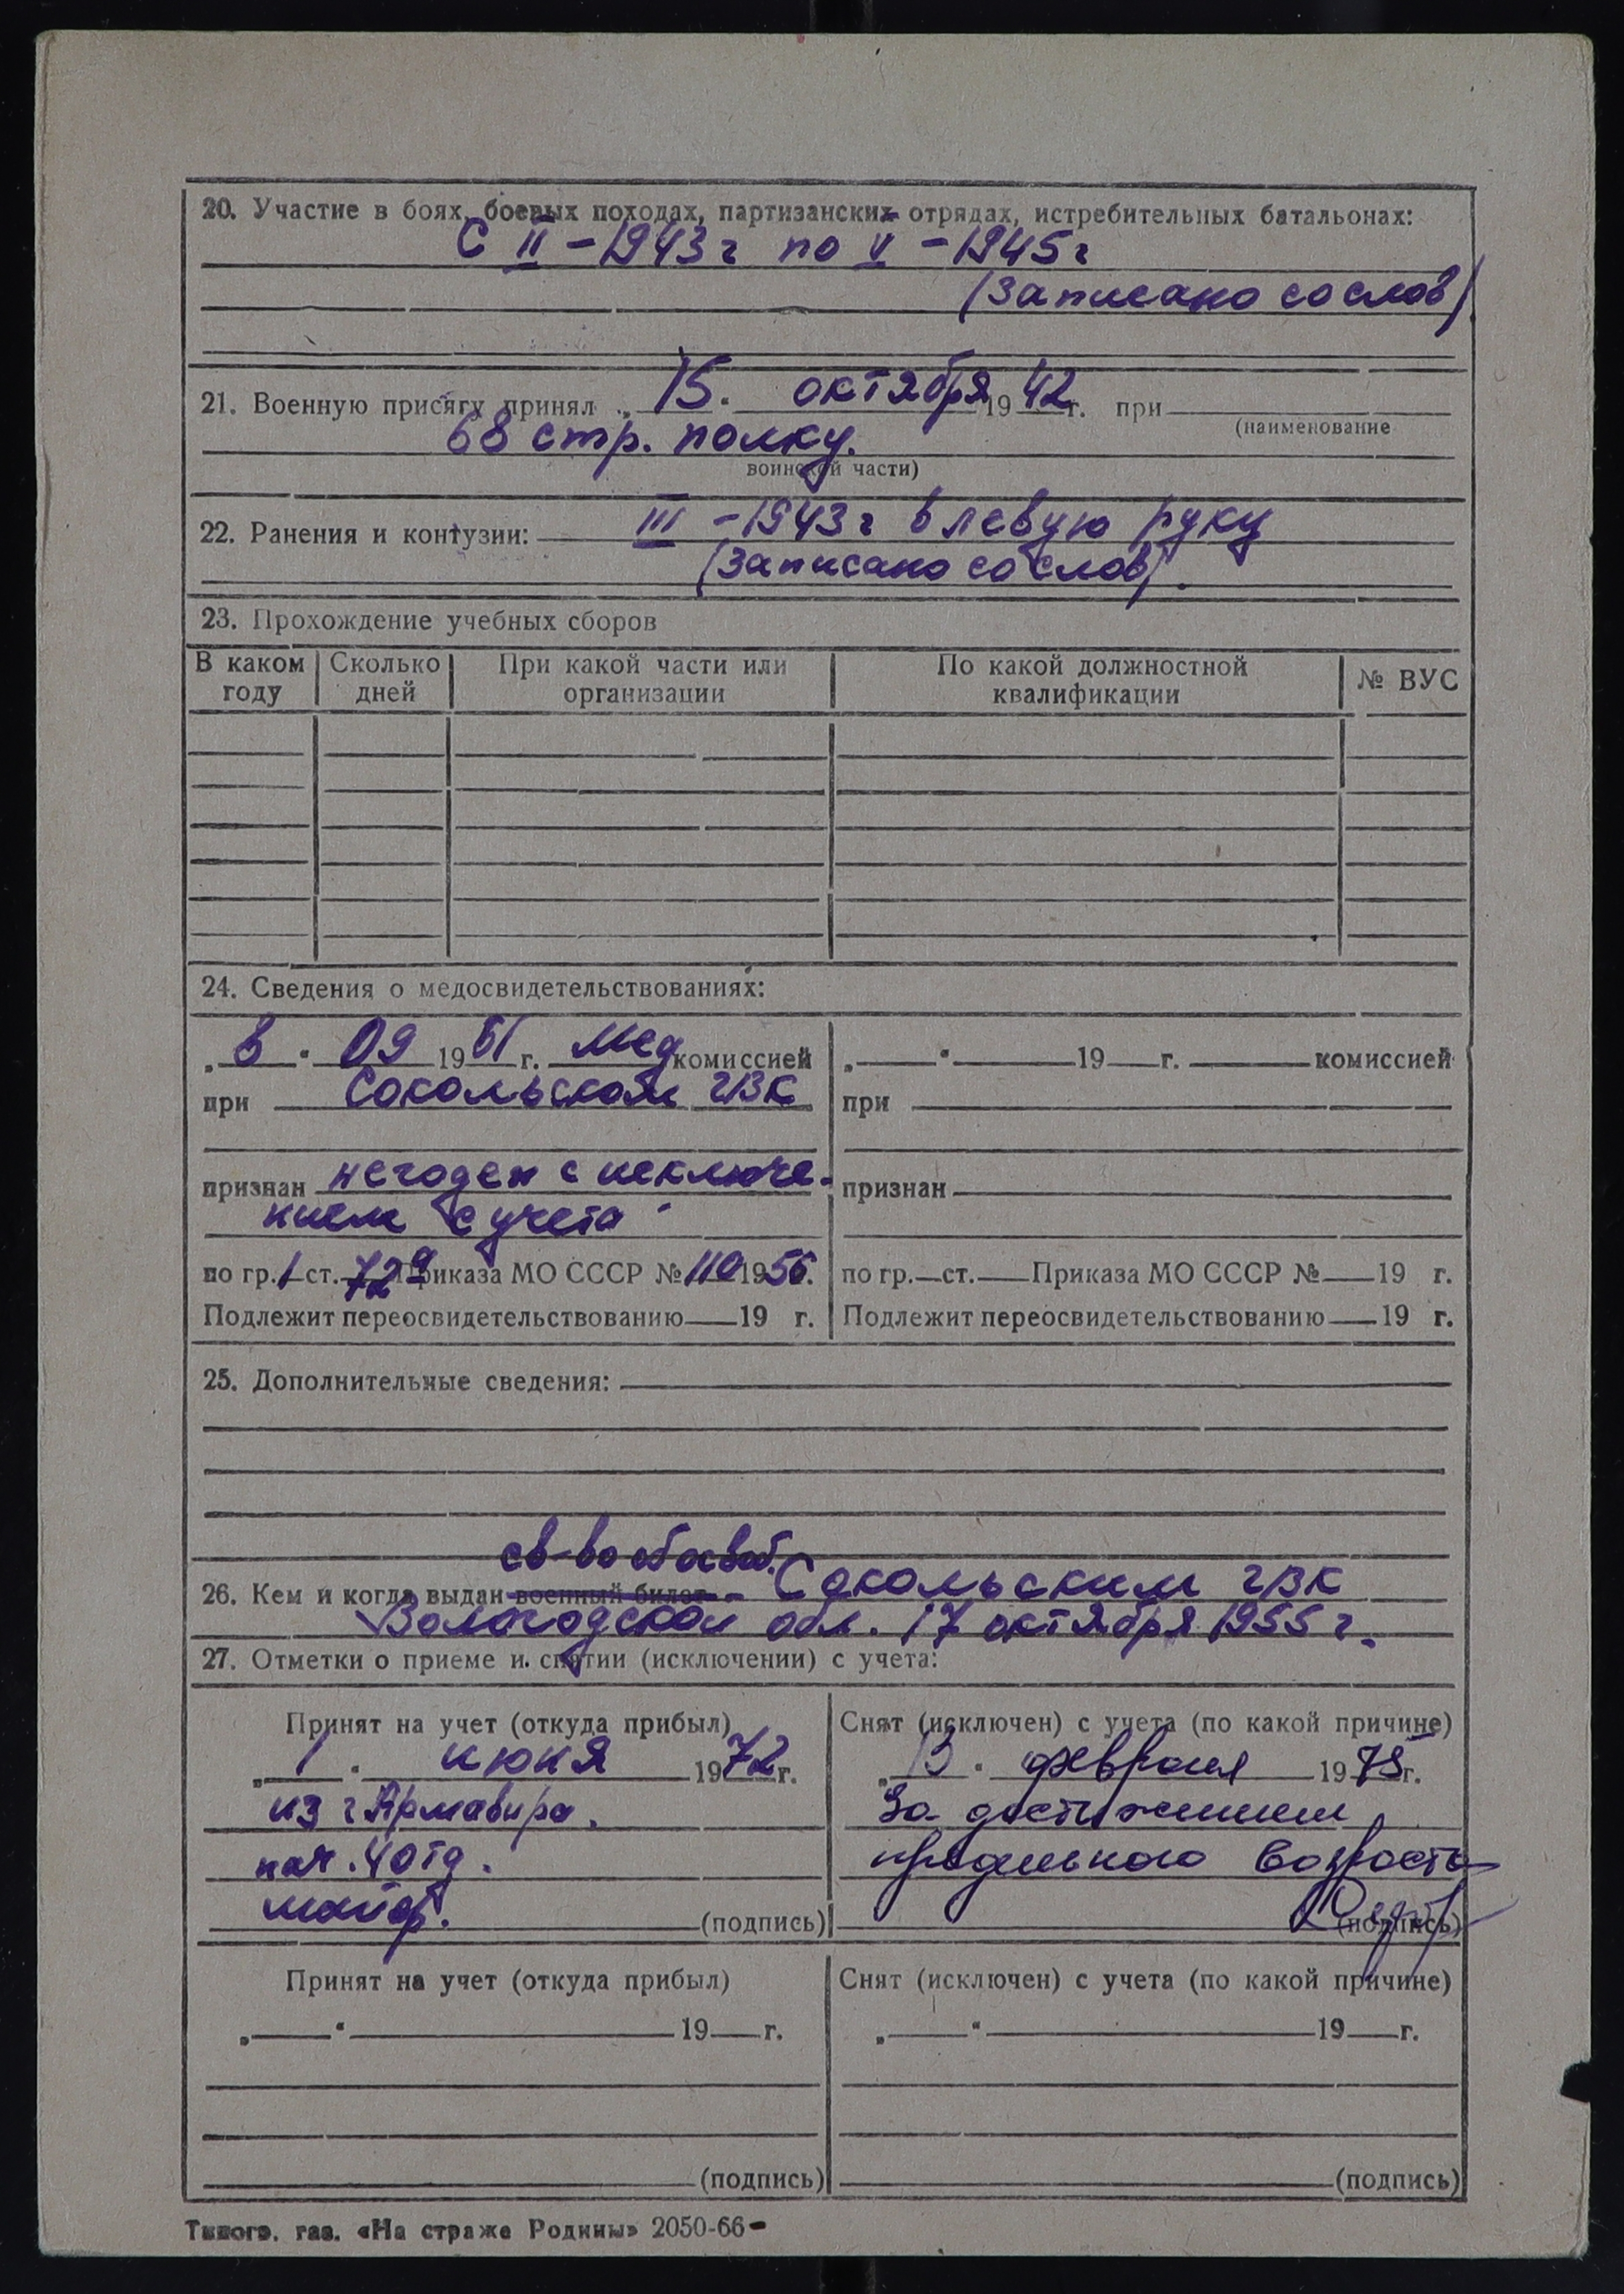 20. Участие в боях, боевых походах, партизанских отрядах, истребительных батальонах:
С II – 1943 г по V – 1945 г
(записано со слов)
21. Военную присягу принял „15." октября 1942 г. при
(наименование
68 стр. полку.
воинской части)
22. Ранения и контузии: III – 1943 г в левую руку
(записано со слов).
23. Прохождение учебных сборов
В каком году | Сколько дней | При какой части или организации | По какой должностной квалификации | № ВУС
24. Сведения о медосвидетельствованиях:
„8" 09 1961 г. мед комиссией
при Сокольском ГВК
признан негоден с исключе-
нием с учета
по гр. 1 ст. 72а Приказа МО СССР № 110 1956.
Подлежит переосвидетельствованию 19 г.
„ " 19 г. комиссией
при
признан
по гр. ст. Приказа МО СССР № 19 г.
Подлежит переосвидетельствованию 19 г.
25. Дополнительные сведения:
св-во об освоб.
26. Кем и когда выдан военный билет – Сокольским ГВК
Вологодской обл. 17 октября 1955 г.
27. Отметки о приеме и снятии (исключении) с учета:
Принят на учет (откуда прибыл)
„1" июня 1972 г.
из г Армавира.
нач. 4 отд.
майор.
(подпись)
Снят (исключен) с учета (по какой причине)
„13" февраля 1975 г.
За достижением
предельного возраста
(подпись)
Принят на учет (откуда прибыл)
„ " 19 г.
(подпись)
Снят (исключен) с учета (по какой причине)
„ " 19 г.
(подпись)
Типогр. газ. «На страже Родины» 2050-66